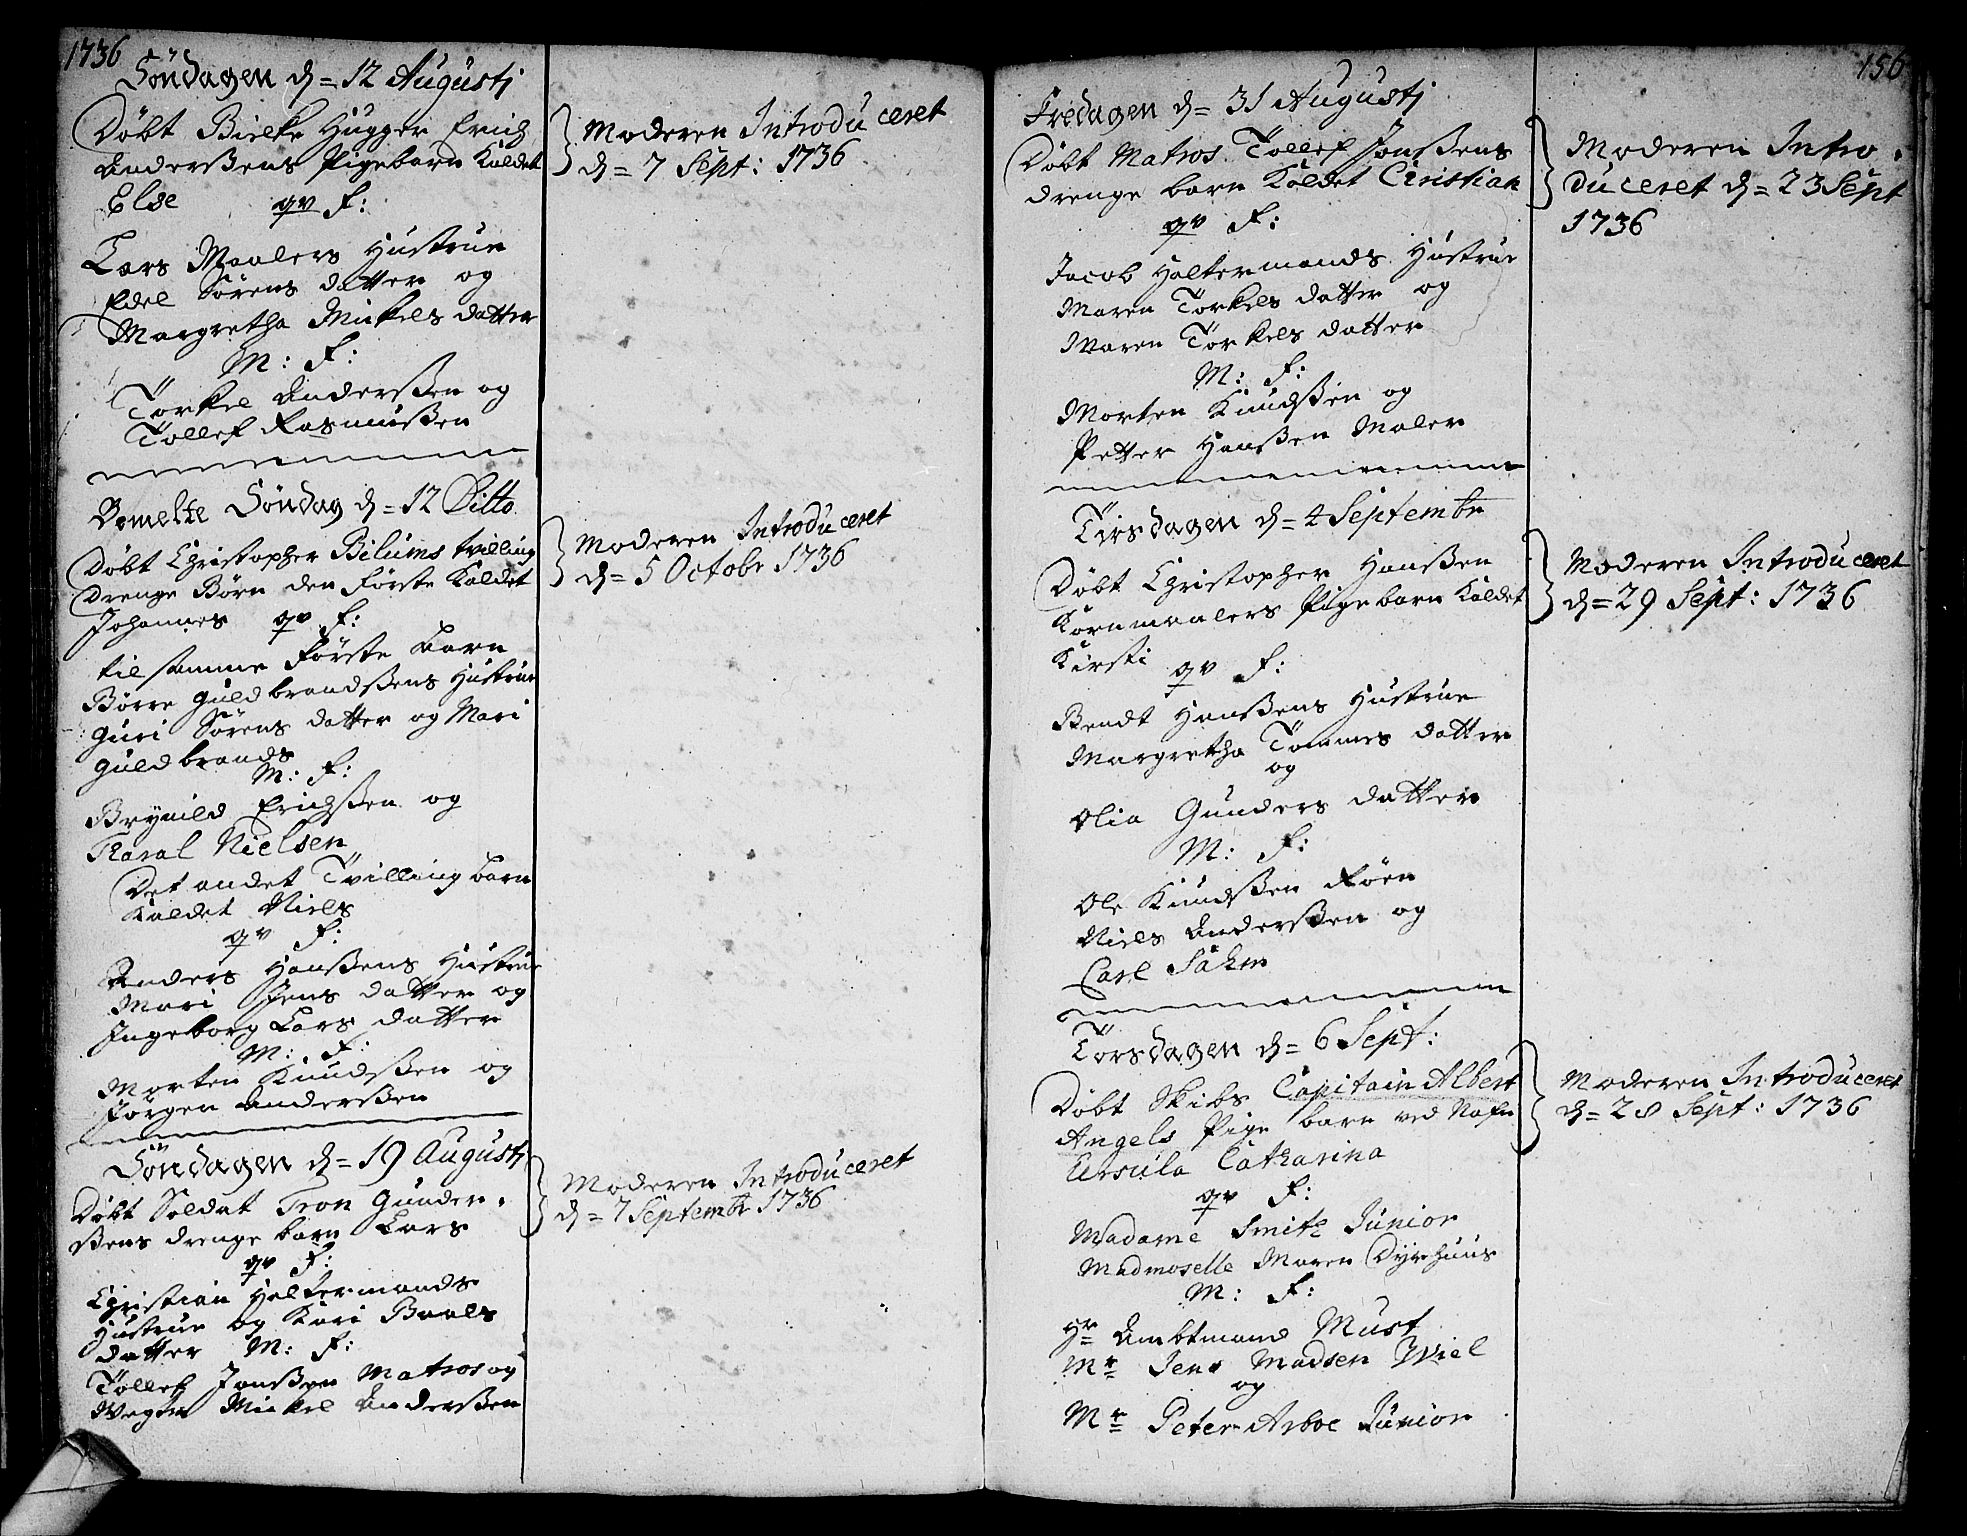 1736
Söndagen d= 12 Augustj
Döbt Bielke Hugger Erich
Anderßens Pigebarn Kaldet
Else qv F:
Lars Maalers Hustrue
Edel Sörens datter og
Margretha Mickels datter
M: F:
Torkel Anderßen og
Tollef Rasmußen
Söndag d= 12 Ditto
Döbt Christopher Bilums tvilling
drenge Börn den Förste Kaldet
Johannes qv F:
til samme Förste barn
Börre Guldbrandßens Hustrue
Guri Sörens datter og Mari
Guldbrands
M: F:
Brynild Erichßen og
Haral Nielsen
Det andet Tvilling barn
Kaldet Niels
qv F:
Anders Hanßens Hustrue
Mari Jens datter og
Ingeborg Lars datter
M: F:
Morten Knudßen og
Jörgen Anderßen
Söndagen d= 19 Augustj
Döbt Soldat Tron Gunder-
ßens drenge barn Lars
qv F:
Christian Haltermands
Hustrue og Kari Baals
datter M: F:
Tollef Jonßen Matros og
Mickel Anderßen
Moderen Introduceret
d= 7 Sept: 1736
Moderen Introduceret
d= 5 Octobr 1736
Moderen Introduceret
d= 7 Septembr 1736
156
Fredagen d= 31 Augustj
Döbt Matros Tollef Jonßens
drenge barn Kaldet Cristian
qv F:
Jacob Haltermands Hustrue
Maren Torkels datter og
Maren Torkels datter
M: F:
Morten Knudßen og
Petter Hanßen Maler
Tirsdagen d= 4 Septembr
Döbt Christopher Hanßen
Kornmaalers Pigebarn Kaldet
Kirsti qv F:
Bendt Hanßens Hustrue
Margretha Tommes datter
og
Olia Gunders datter
M: F:
Ole Knudßen Röen
Niels Anderßen og
Carl Sahm
Torsdagen d= 6 Sept:
Döbt Skibs Capitain Albert
Angels Pige barn ved Nafn
Ursula Catharina
qv F:
Madame Smith Junior
Madmoselle Maren Dyrehuus
M: F:
Hr Ambtmand Must
Mr Jens Madsen Wiel
og
Mr Peter Arboe Junior
Moderen Intro-
duceret d= 23 Sept
1736
Moderen Introduceret
d= 29 Sept: 1736
Moderen Introduceret
d= 28 Sept: 1736